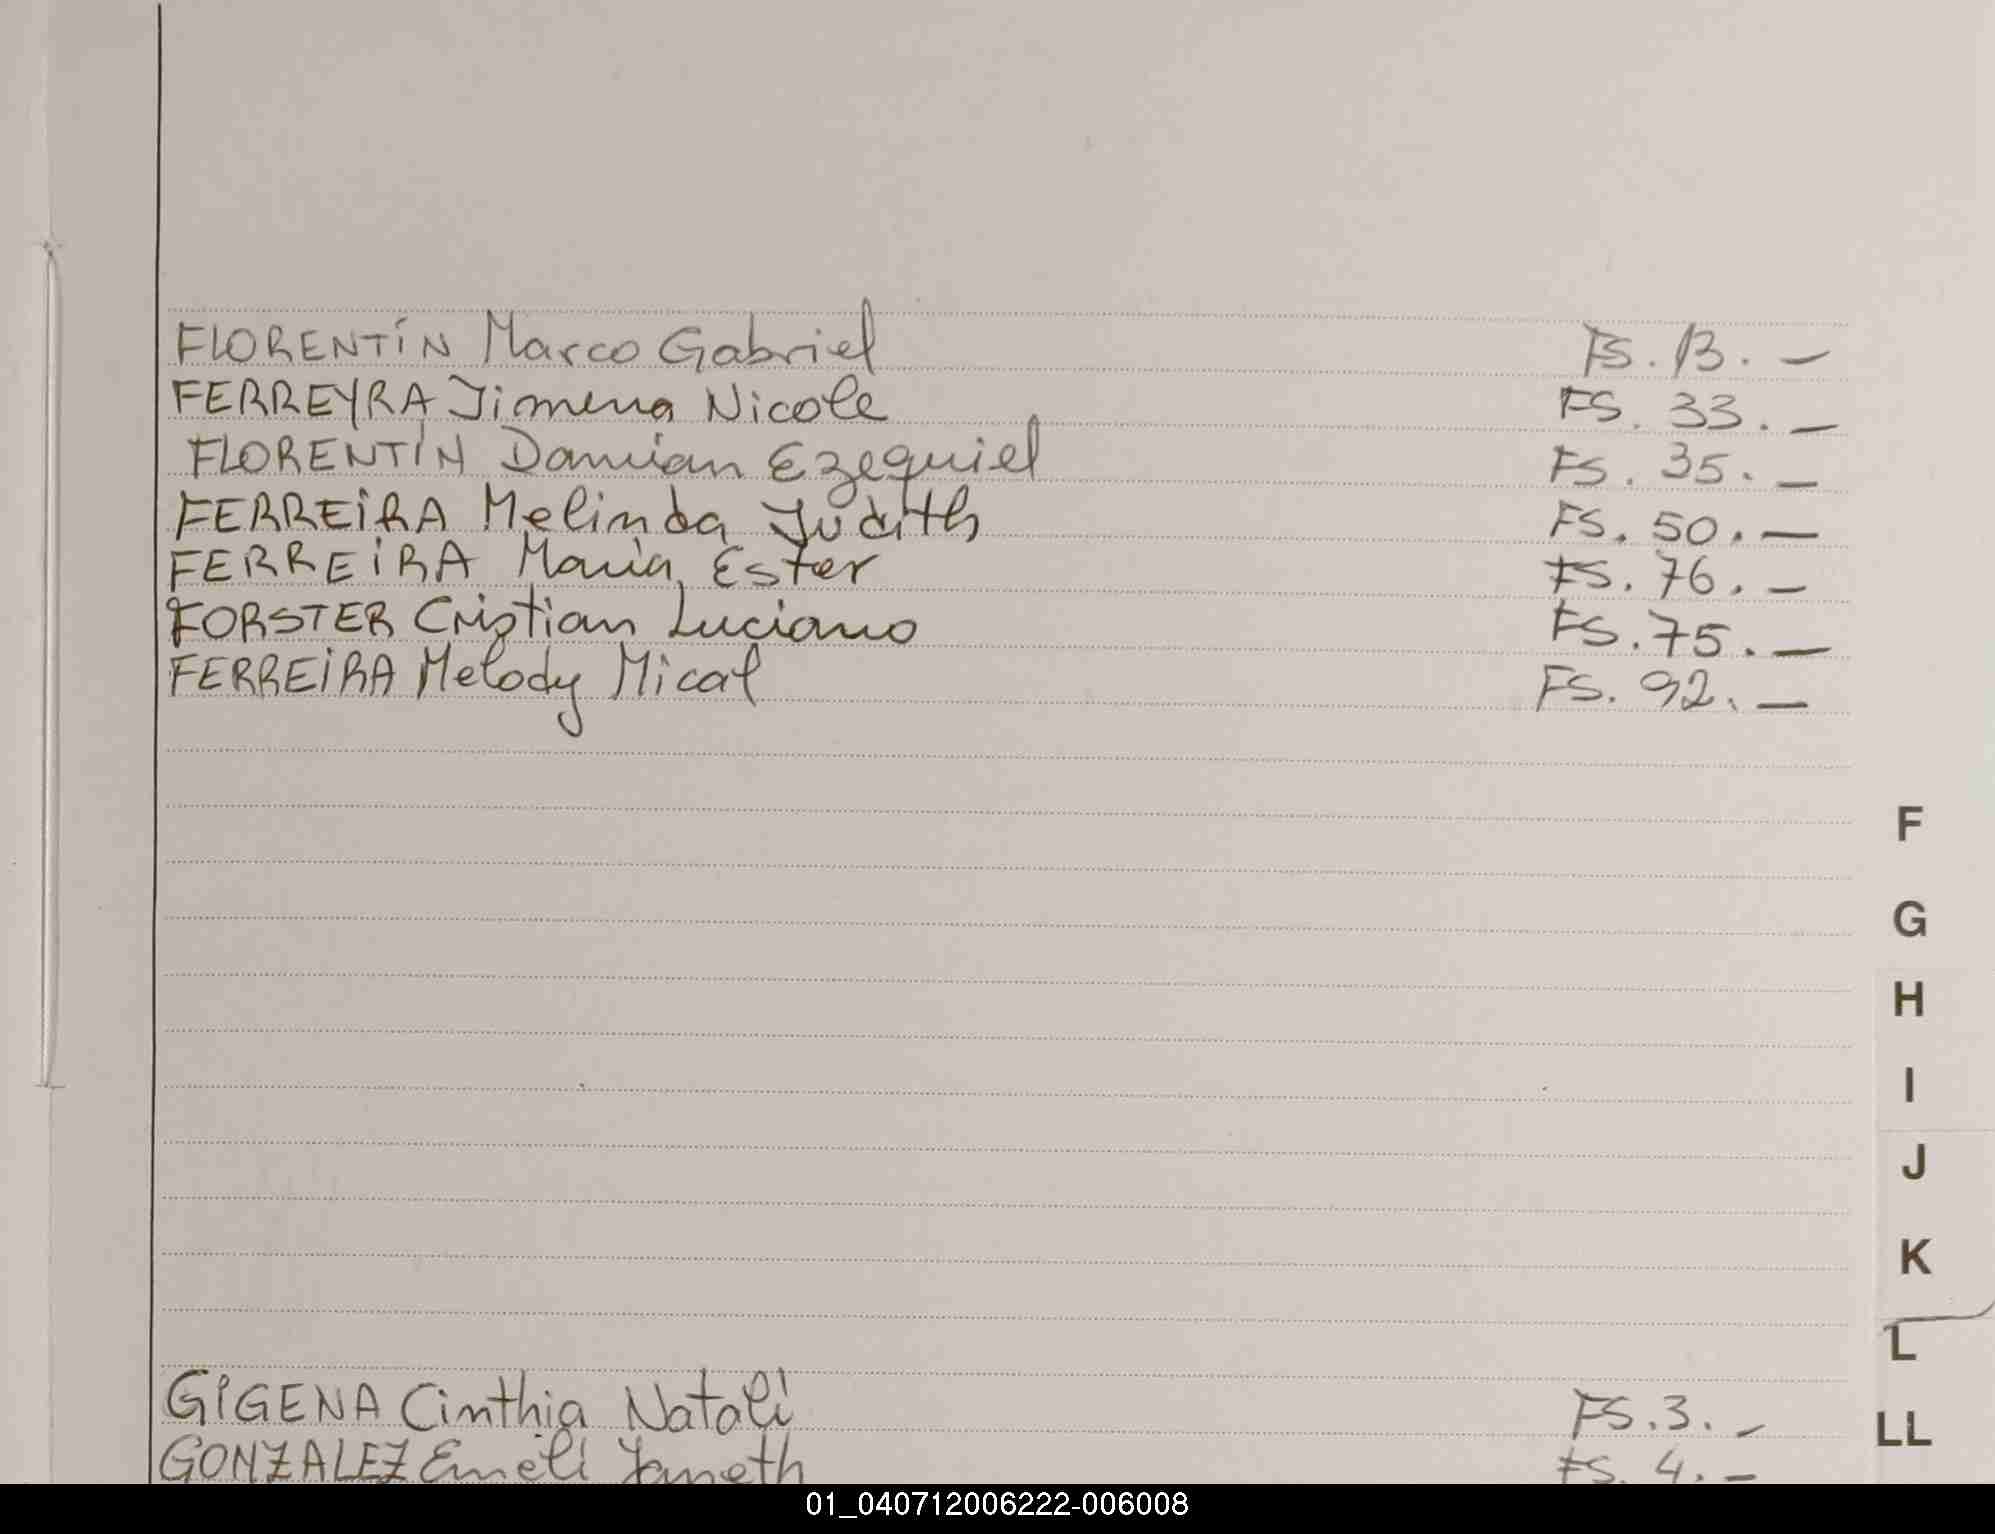 FLORENTÍN Marco Gabriel FS. 13. —
FERREYRA Jimena Nicole FS. 33. —
FLORENTÍN Damian Ezequiel FS. 35. —
FERREIRA Melinda Judith FS. 50. —
FERREIRA Maria Ester FS. 76. —
FORSTER Cristian Luciano FS. 75. —
FERREIRA Melody Mical FS. 92. —
F
G
H
I
J
K
L
GIGENA Cinthia Natali FS. 3. —
LL
GONZALEZ Emeli Janeth FS. 4. —
01_040712006222-006008